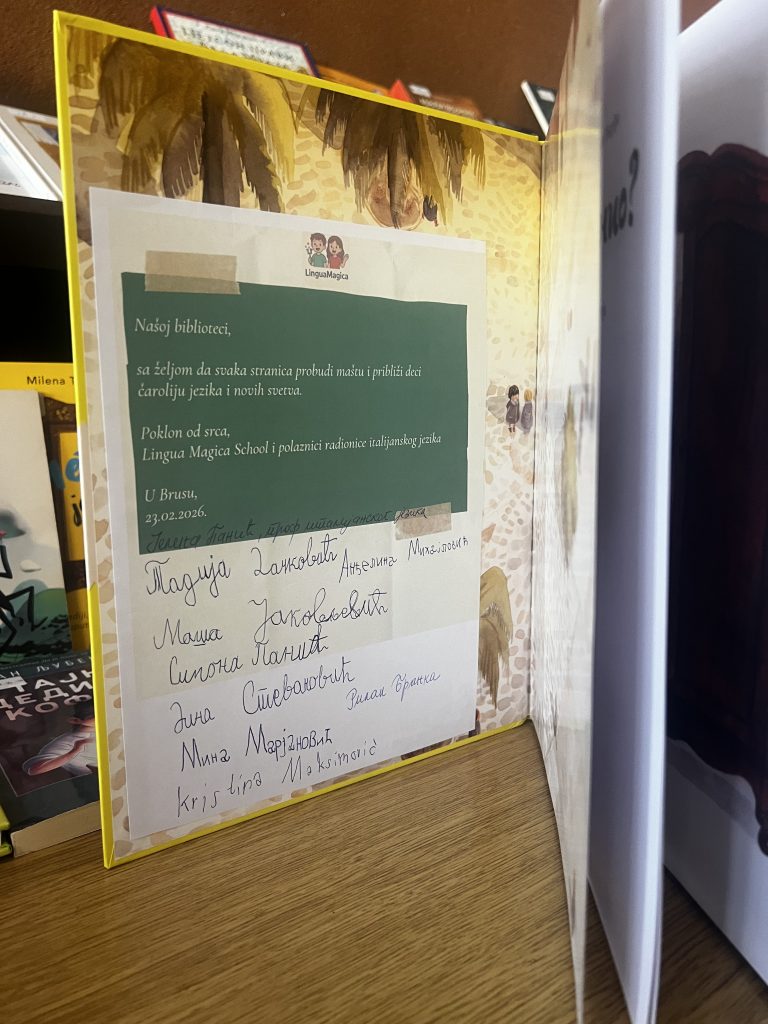 LinguaMagica
Našoj biblioteci,
sa željom da svaka stranica probudi maštu i približi deci
čaroliju jezika i novih svetva.
Poklon od srca,
Lingua Magica School i polaznici radionice italijanskog jezika
U Brusu,
23.02.2026.
Јелена Панић, проф. италијанског језика
Тадија Анђелина Михајловић
Маша Јаковљевић
Симона Панић
Стевановић
Бранка
Мина Марјановић
Kristina Maksimović
Milena
ТАЈ
ДЕДИ
КОФ